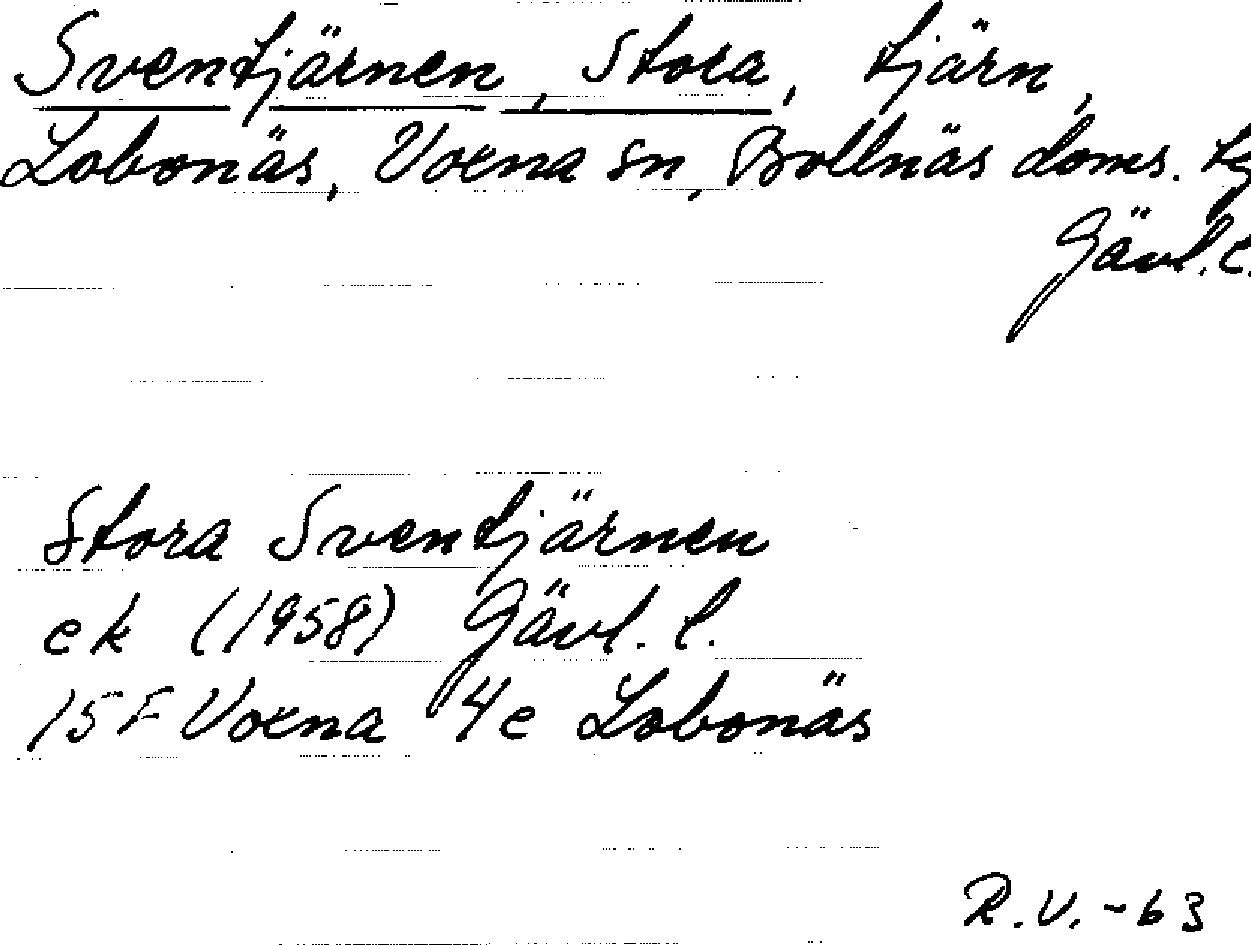 Sventjärnen, Stora, tjärn,
Lobonäs, Voxna sn, Bollnäs doms.
Gävl. l.
Stora Sventjärnen
ek (1958) Gävl. l.
15 F Voxna 4c Lobonäs
R.V.-63